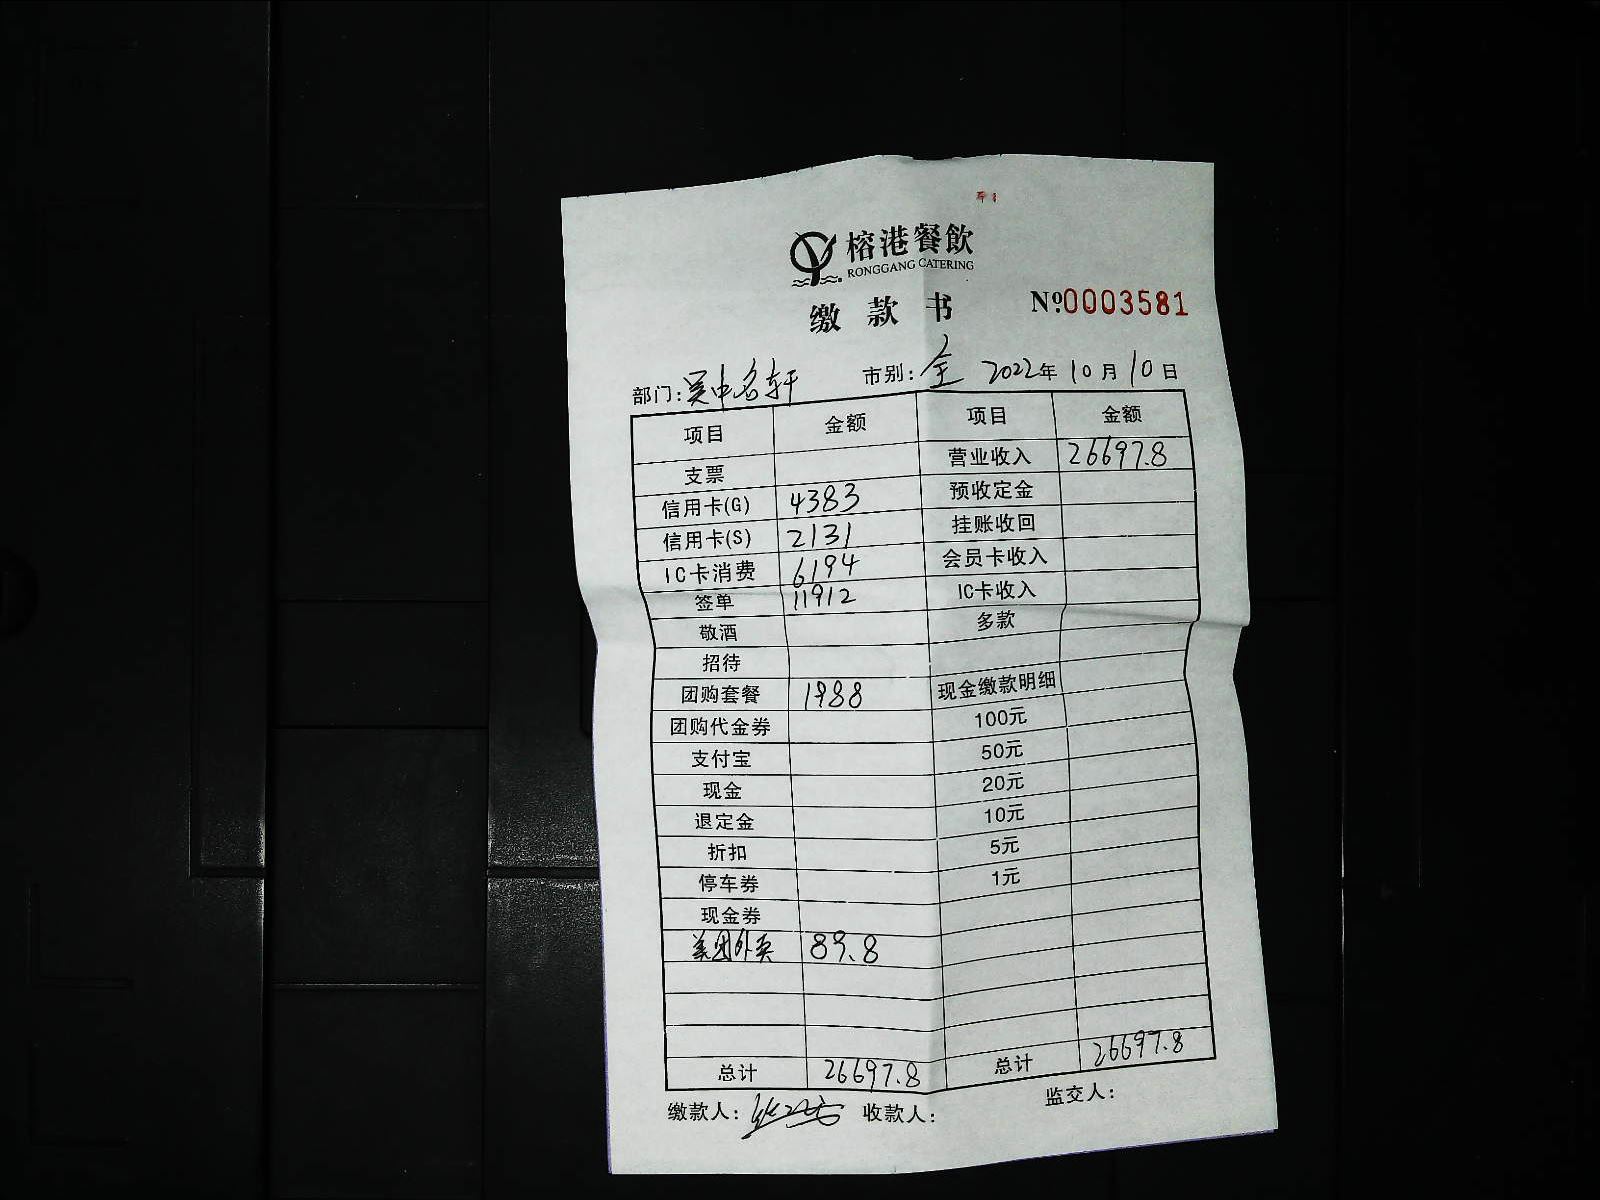 榕港餐飲
RONGGANG CATERING
缴款书 №0003581
部门:吴中名轩 市别:全 2022年10月10日
项目 金额 项目 金额
支票 营业收入 26697.8
信用卡(G) 4383 预收定金
信用卡(S) 2131 挂账收回
IC卡消费 6194 会员卡收入
签单 11912 IC卡收入
敬酒 多款
招待
团购套餐 1988 现金缴款明细
团购代金券 100元
支付宝 50元
现金 20元
退定金 10元
折扣 5元
停车券 1元
现金券
美团外卖 89.8
总计 26697.8 总计 26697.8
缴款人: 收款人: 监交人: